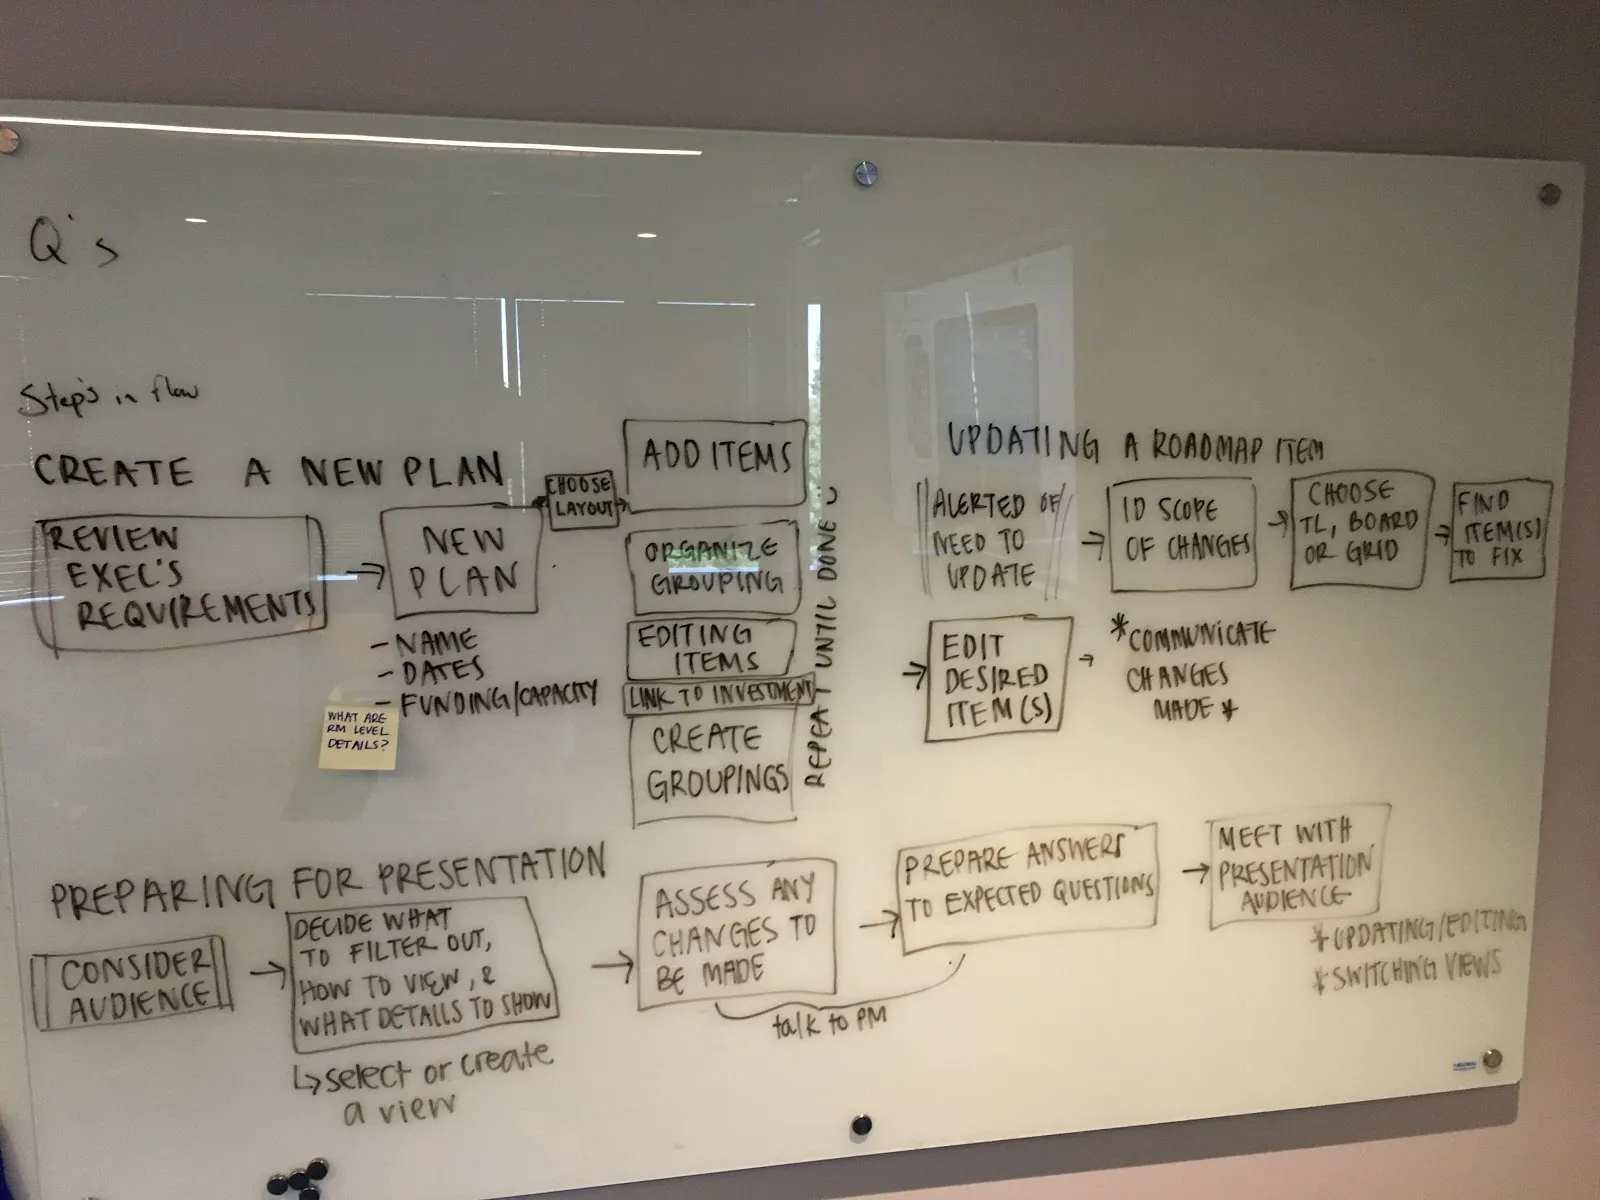 Q's
Steps in flow
CREATE A NEW PLAN
REVIEW
EXEC'S
REQUIREMENTS
NEW
PLAN
- NAME
- DATES
- FUNDING/CAPACITY
WHAT ARE
RM LEVEL
DETAILS?
CHOOSE
LAYOUT
ADD ITEMS
ORGANIZE
GROUPING
EDITING
ITEMS
LINK TO INVESTMENT
CREATE
GROUPINGS
REPEAT UNTIL DONE
UPDATING A ROADMAP ITEM
ALERTED OF
NEED TO
UPDATE
ID SCOPE
OF CHANGES
CHOOSE
TL, BOARD
OR GRID
FIND
ITEM(S)
TO FIX
EDIT
DESIRED
ITEM(S)
*COMMUNICATE
CHANGES
MADE*
PREPARING FOR PRESENTATION
CONSIDER
AUDIENCE
DECIDE WHAT
TO FILTER OUT,
HOW TO VIEW, &
WHAT DETAILS TO SHOW
select or create
a view
ASSESS ANY
CHANGES TO
BE MADE
talk to PM
PREPARE ANSWERS
TO EXPECTED QUESTIONS
MEET WITH
PRESENTATION
AUDIENCE
*UPDATING/EDITING
*SWITCHING VIEWS